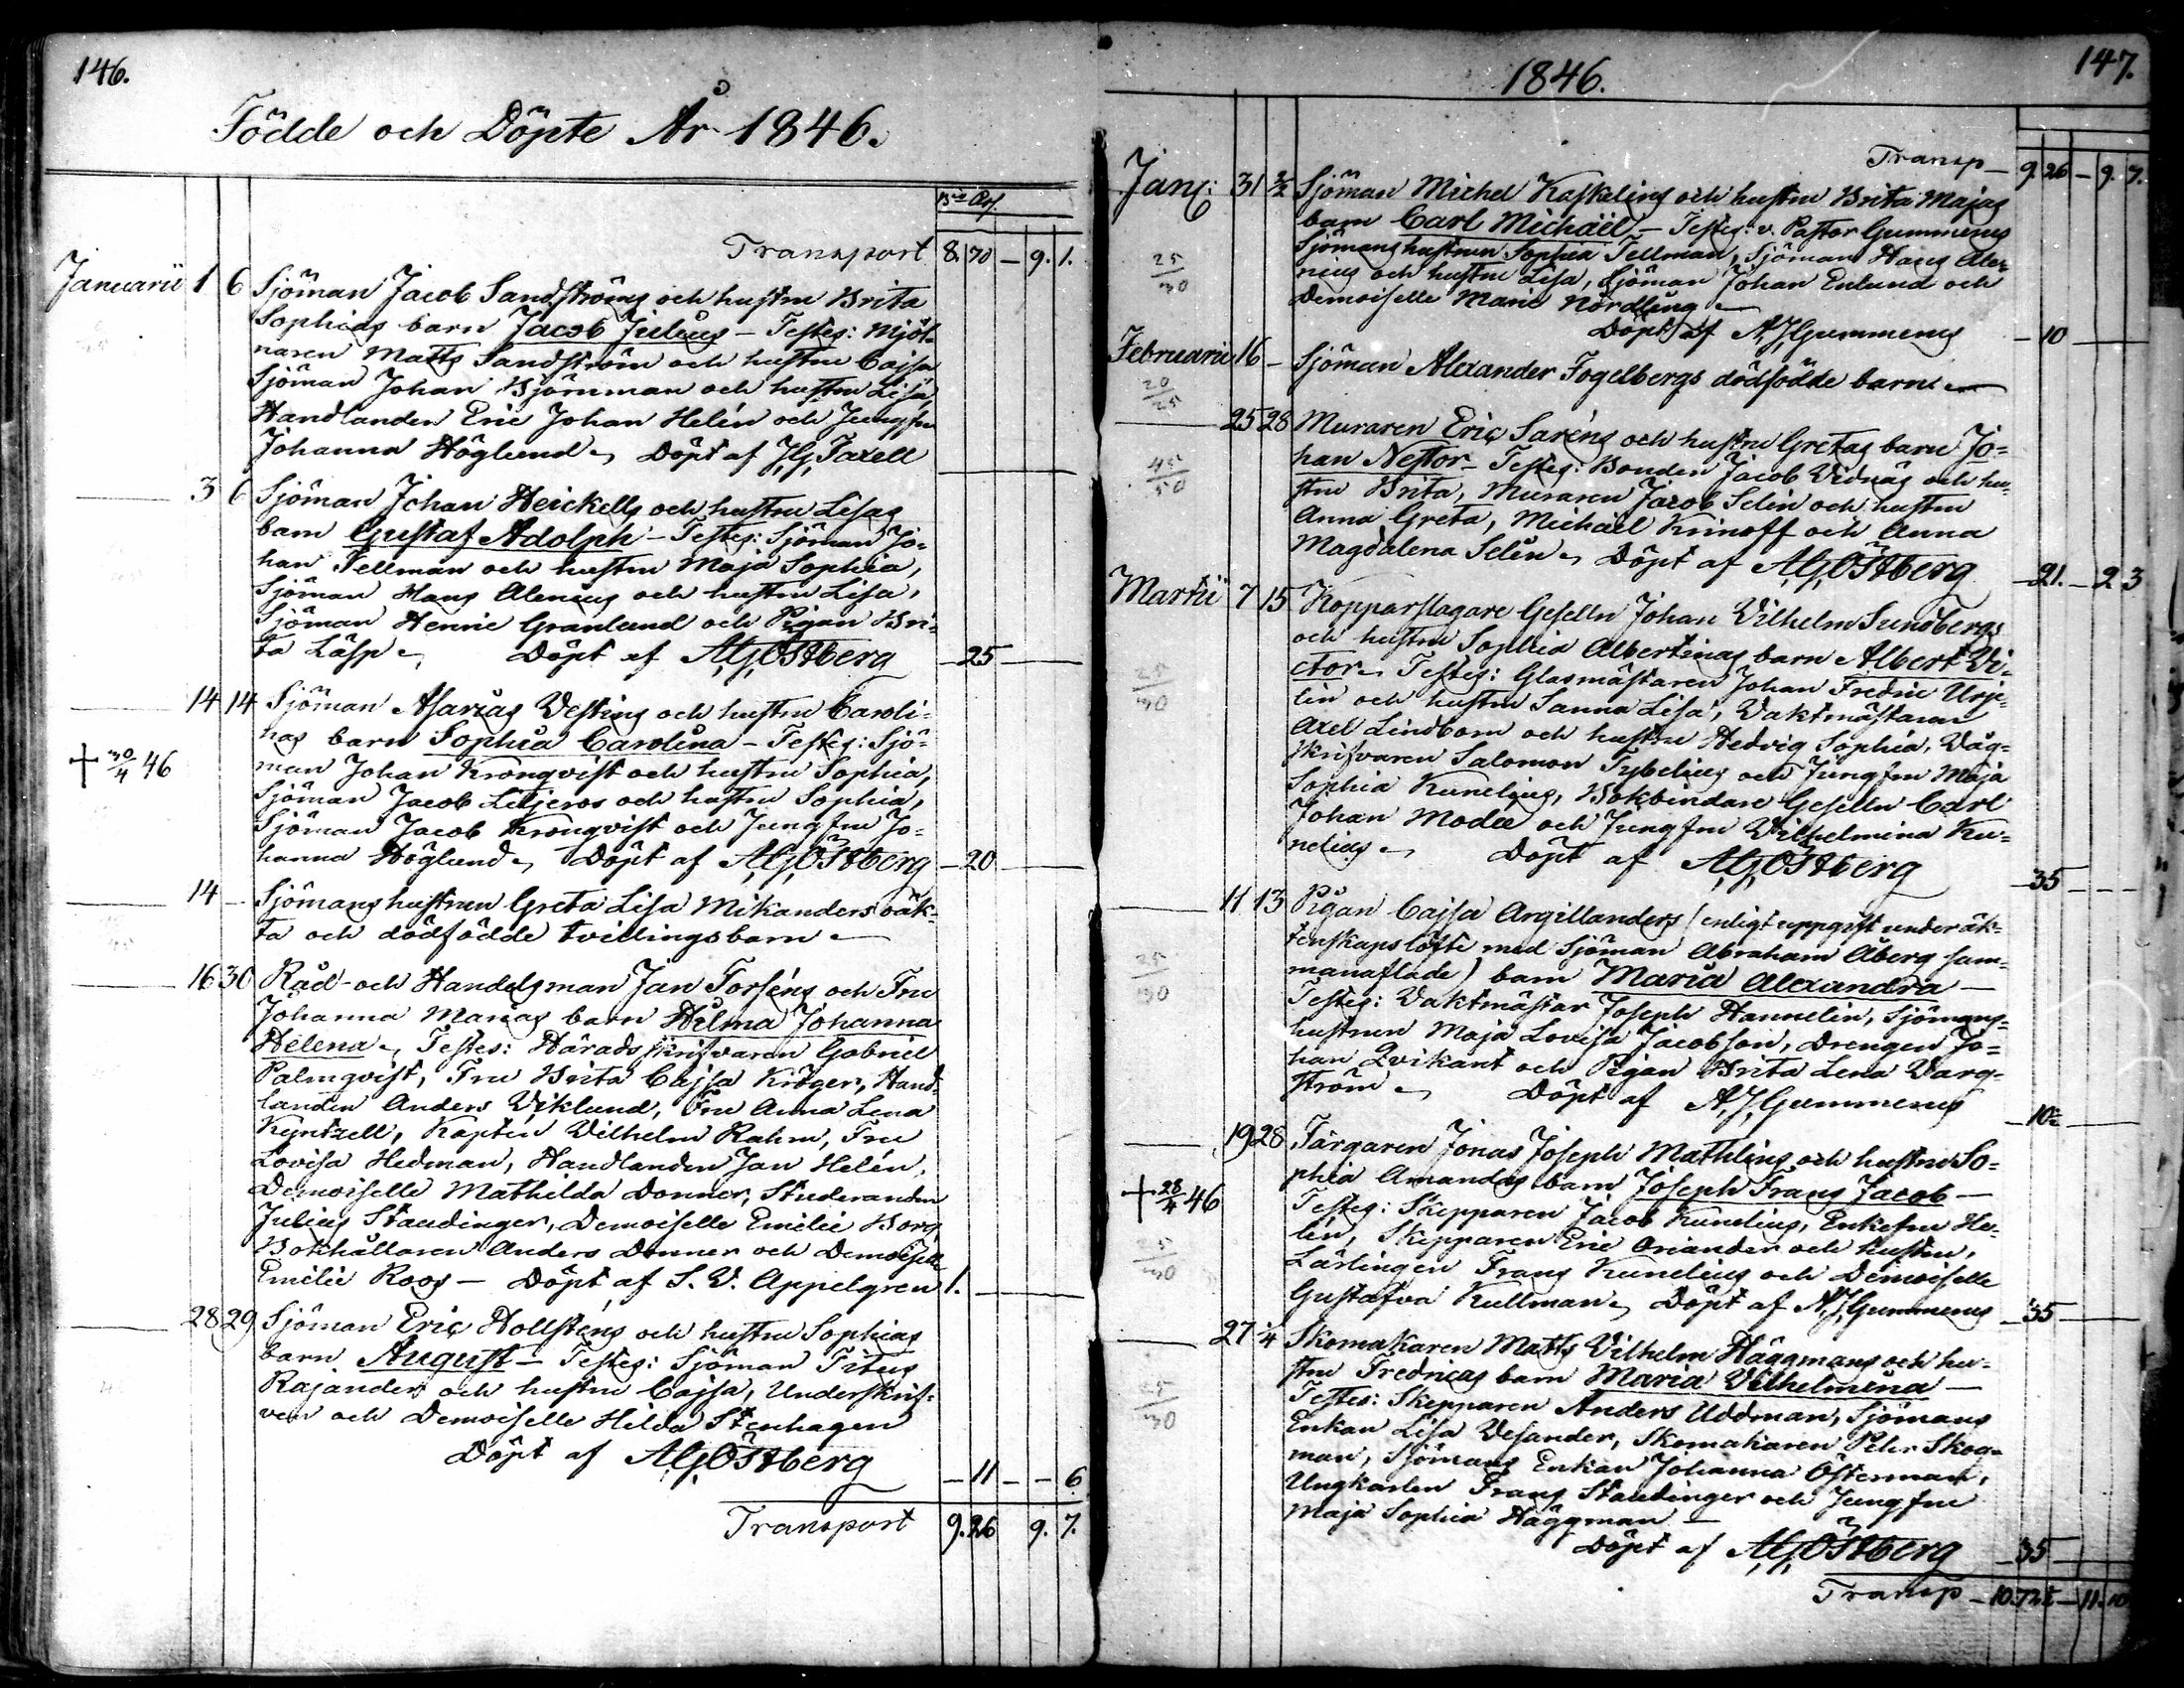 146.
Födde och Döpte År 1846.
Transport 8. 70 — 9. 1.
Januarii 1 6 Sjöman Jacob Sandströms och hustru Brita
Sophias barn Jacob Julius — Testes: Mjöl-
naren Matts Sandström och hustru Cajsa
Sjöman Johan Björnman och hustru Lisa,
Handlanden Eric Johan Helén och Jungfru
Johanna Höglund. Döpt af J.G. Taxell
3 6 Sjöman Johan Heickells och hustru Lisas
barn Gustaf Adolph — Testes: Sjöman Jo-
han Tellman och hustru Maja Sophia,
Sjöman Hans Alenius och hustru Lisa,
Sjöman Henric Granlund och Pigan Bri-
ta Läsp — Döpt af A.G. Östberg — 25 —
14 14 Sjöman Asarias Vestings och hustru Caroli-
nas barn Sophia Carolina — Testes: Sjö-
† 30/4 46
man Johan Kronqvist och hustru Sophia,
Sjöman Jacob Liljeros och hustru Sophia,
Sjöman Jacob Kronqvist och Jungfru Jo-
hanna Höglund. Döpt af A.G. Östberg — 20 —
14 — Sjömans hustrun Greta Lisa Mikanders oäk-
ta och dödfödde tvillingsbarn —
16 30 Råd- och Handelsman Jan Forséns och Fru
Johanna Marias barn Hilma Johanna
Helena. Testes: Häradsskrifvaren Gabriel
Palmqvist, Fru Brita Cajsa Kröger, Hand-
landen Anders Viklund, Fru Anna Lena
Kyntzell, Kapten Vilhelm Rahm, Fru
Lovisa Hedman, Handlanden Jan Helén,
Demoiselle Mathilda Donner, Studeranden
Julius Staudinger, Demoiselle Emilie Borg,
Bokhållaren Anders Donner och Demoiselle
Emilie Roos — Döpt af S. V. Appelgren 1. —
28 29 Sjöman Eric Hollsténs och hustru Sophias
barn August — Testes: Sjöman Titus
Rajander och hustru Cajsa, Underskrif-
ven och Demoiselle Hilda Stenhagen
Döpt af A.G. Östberg — 11 — — 6
Transport 9. 26 9. 7.
147.
1846.
Transp — 9. 26 — 9. 7.
Jan: 31 2/2 Sjöman Michel Kaskelins och hustru Brita Majas
barn Carl Michaël — Testes: v. Pastor Gummerus
25/30
Sjömans hustrun Sophia Tellman, Sjöman Hans Ale-
nius och hustru Lisa, Sjöman Johan Enlund och
Demoiselle Marie Nordlung —
Döpt af A.J. Gummerus — 10 —
Februarii 16 — Sjöman Alexander Fogelbergs dödfödde barn —
20/25
25 28 Muraren Eric Saréns och hustru Gretas barn Jo-
han Nestor — Testes: Bonden Jacob Vidnäs och hu-
45/50
stru Brita, Muraren Jacob Selin och hustru
Anna Greta, Michaël Krinoff och Anna
Magdalena Selin. Döpt af A.G. Östberg — 21. — 2 3
Martii 7 15 Kopparslagare Gesellen Johan Vilhelm Sundbergs
och hustru Sophia Albertinas barn Albert Vi-
25/30
ctor. Testes: Glasmästaren Johan Fredric Urpe-
lin och hustru Sanna Lisa, Vaktmästaren
Axel Lindbom och hustru Hedvig Sophia, Våg-
skrifvaren Salomon Tybelius och Jungfru Maja
Sophia Kunelius, Bokbindare Gesellen Carl
Johan Modée och Jungfru Vilhelmina Ku-
nelius — Döpt af A.G. Östberg — 35 —
11 13 Pigan Cajsa Argillanders (enligt uppgift under äk-
tenskapslöfte med Sjöman Abraham Åberg sam-
25/30
manaflade) barn Maria Alexandra —
Testes: Vaktmästar Joseph Hannelin, Sjömans-
hustrun Maja Lovisa Jacobson, Drengen Jo-
han Qvikant och Pigan Brita Lena Varg-
ström — Döpt af A.J. Gummerus — 10 —
19 28 Färgaren Jonas Joseph Mathlins och hustru So-
phia Amandas barn Joseph Frans Jacob —
† 28/4 46
Testes: Skepparen Jacob Kunelius, Enkefru He-
lén, Skepparen Eric Oriander och hustru,
25/30
Lärlingen Frans Kunelius och Demoiselle
Gustafva Kullman. Döpt af A.J. Gummerus — 35 —
27 4 Skomakaren Matts Vilhelm Häggmans och hu-
stru Fredricas barn Maria Vilhelmina —
25/30
Testes: Skepparen Anders Uddman, Sjömans
Enkan Lisa Vesander, Skomakaren Petter Skog-
man, Sjömans Enkan Johanna Österman,
Ungkarlen Frans Staudinger och Jungfru
Maja Sophia Häggman —
Döpt af A.G. Östberg — 35 —
Transp — 10. 72 — 11. 10